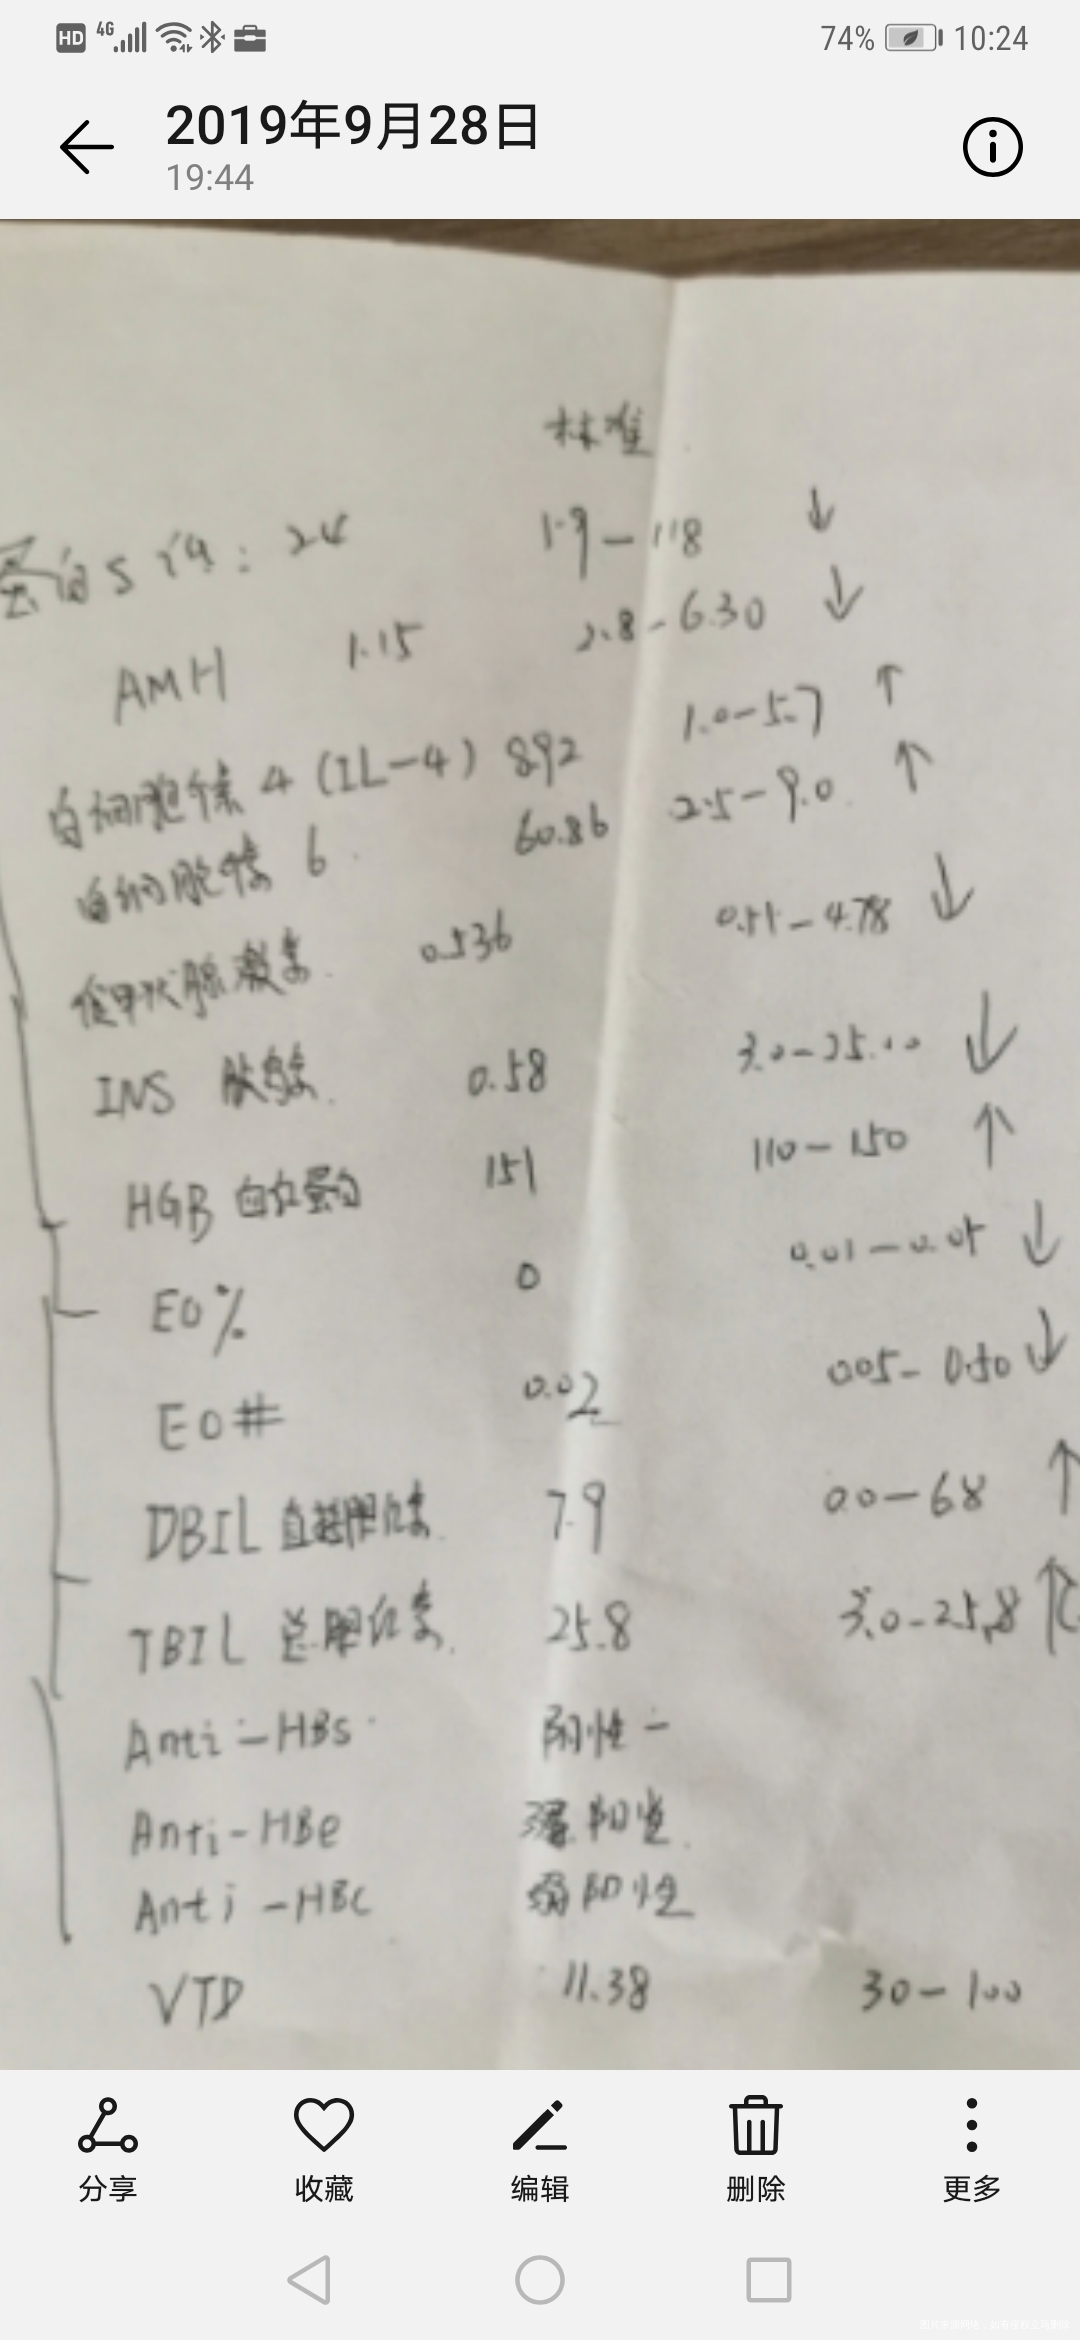 HD 4G 74% 10:24
2019年9月28日
19:44
标准
蛋白S 活: 24 1.9-118 ↓
AMH 1.15 2.8-6.30 ↓
白细胞介素 4 (IL-4) 892 1.0-5.7 ↑
白细胞介素 6 60.86 2.5-9.0 ↑
促甲状腺激素 0.536 0.55-4.78 ↓
INS 胰岛素 0.58 3.0-25.00 ↓
HGB 白红蛋白 151 110-150 ↑
EO% 0 0.01-0.05 ↓
EO# 0.02 0.05-0.50 ↓
DBIL 直接胆红素 7.9 0.0-6.8 ↑
TBIL 总胆红素 25.8 3.0-25.8 ↑
Anti-HBs 阴性-
Anti-HBe 阳性
Anti-HBc 弱阳性
VTD 11.38 30-100
分享 收藏 编辑 删除 更多